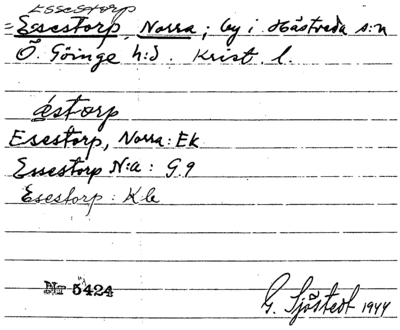 Essestorp
= Essestorp, Norra; by i Hästveda s:n
Ö. Göinge h:d. Krist. l.
æstorp
Esestorp, Norra: Ek
Essestorp N:a: G 9
Esestorp: Kb
Nr 5424
G. Sjöstedt 1944